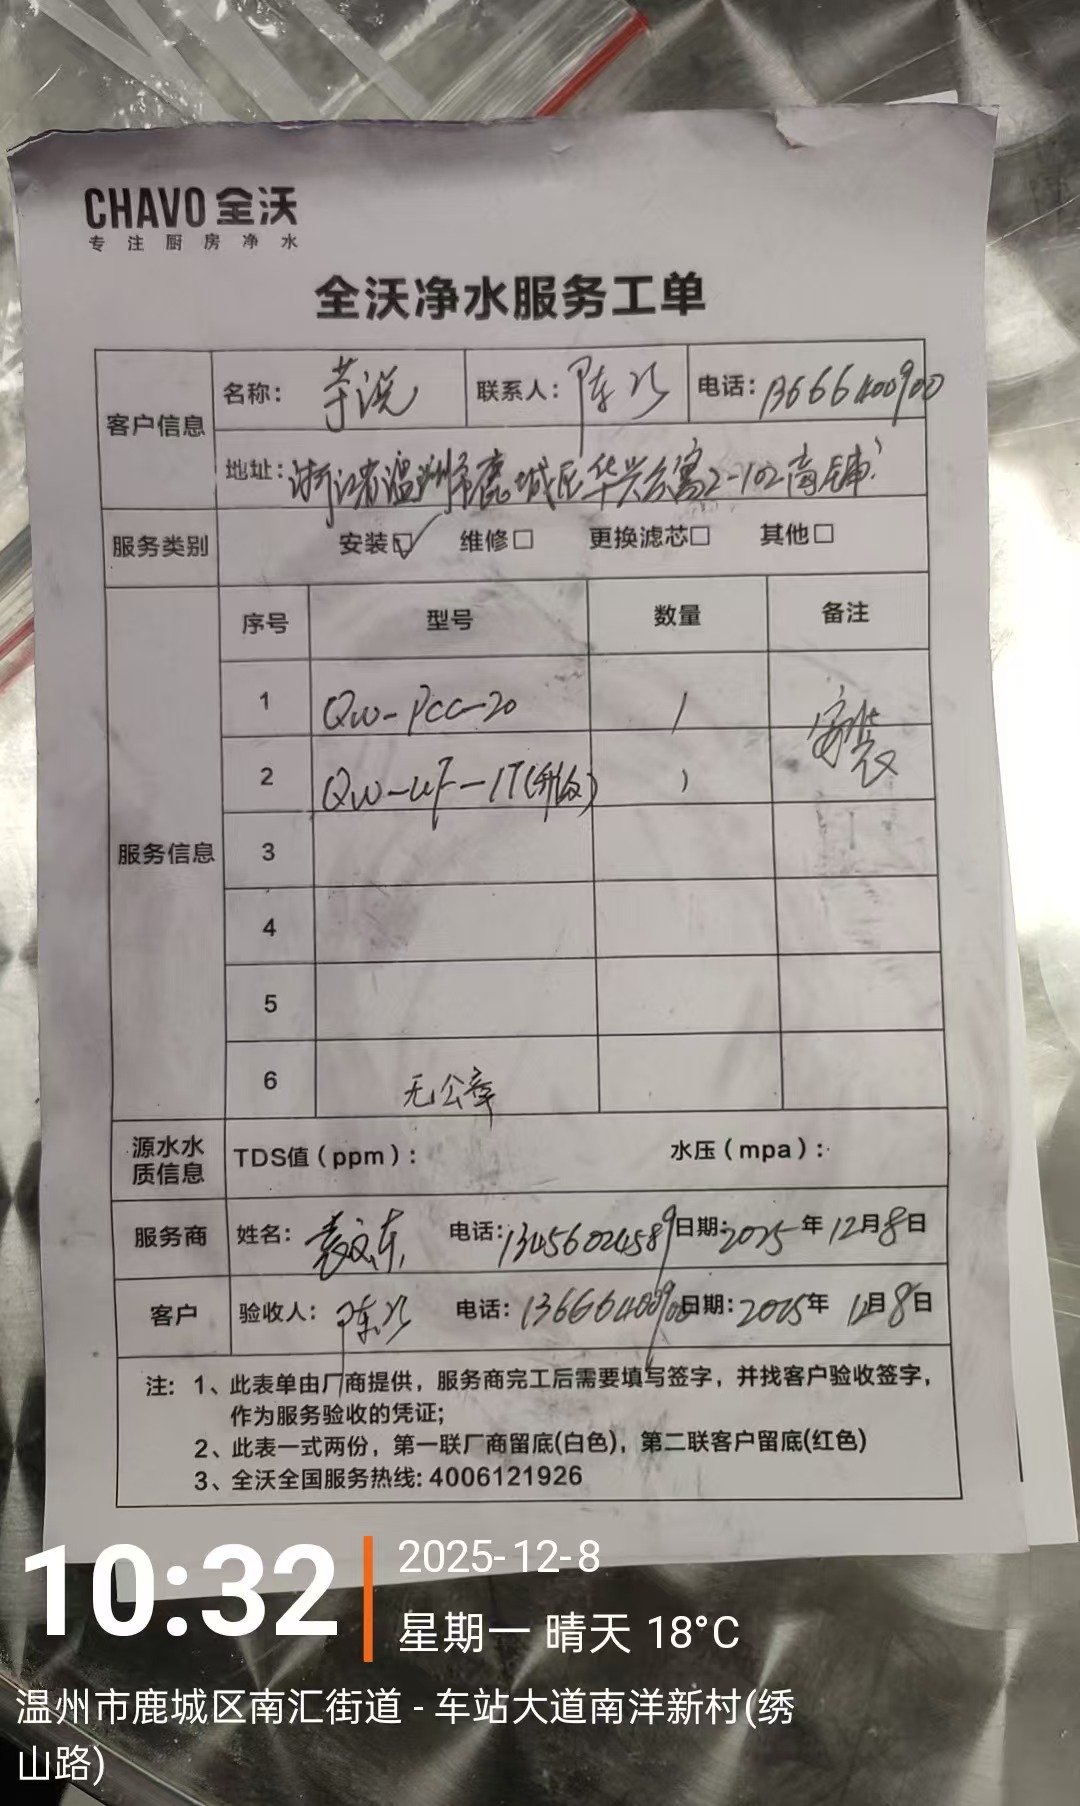 CHAVO 全沃
专注厨房净水
全沃净水服务工单
客户信息 名称: 联系人: 陈 电话: 13666400900
地址: 浙江省温州市鹿城区华兴公寓2-102商铺
服务类别 安装☑ 维修□ 更换滤芯□ 其他□
服务信息 序号 型号 数量 备注
1 QW-PCC-20 1 安装
2 QW-UF-1T(升级) 1
3
4
5
6 无公章
源水水质信息 TDS值(ppm): 水压(mpa):
服务商 姓名: 袁文东 电话: 13456024589 日期: 2025年12月8日
客户 验收人: 陈 电话: 13666400900 日期: 2025年12月8日
注: 1、此表单由厂商提供，服务商完工后需要填写签字，并找客户验收签字，
作为服务验收的凭证;
2、此表一式两份，第一联厂商留底(白色)，第二联客户留底(红色)
3、全沃全国服务热线: 4006121926
10:32
2025-12-8
星期一 晴天 18°C
温州市鹿城区南汇街道 - 车站大道南洋新村(绣
山路)